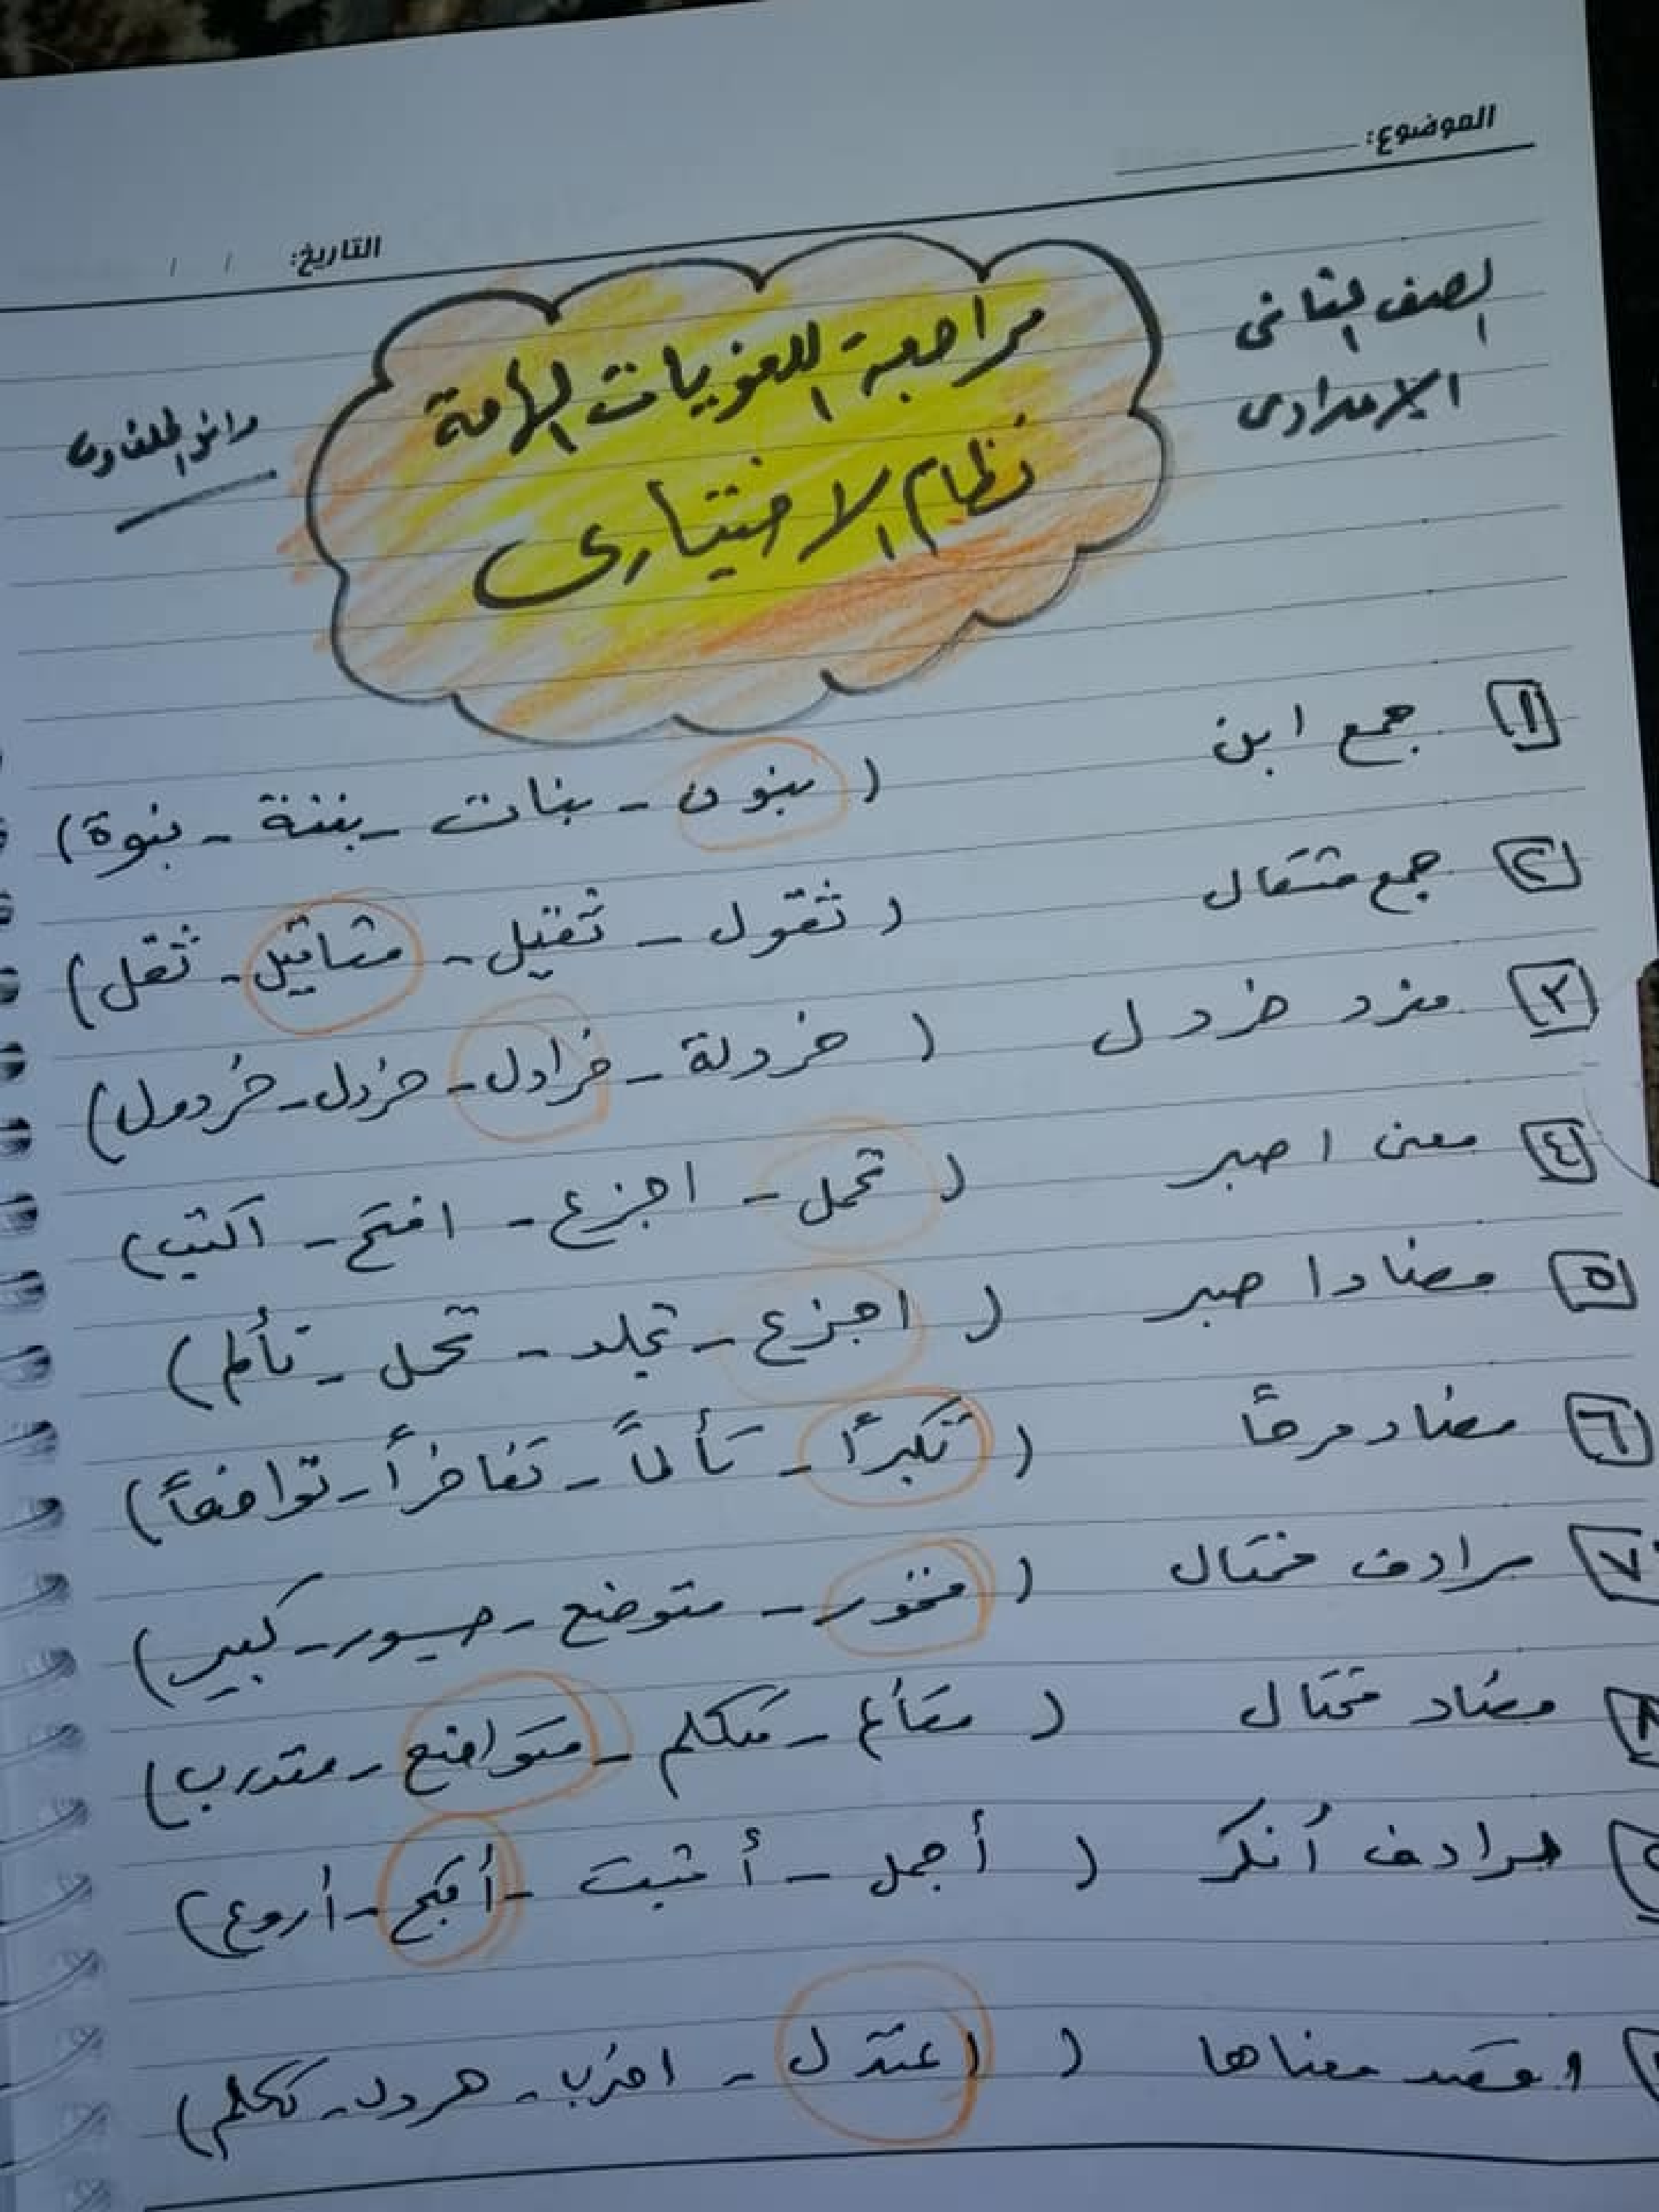 الموضوع:
التاريخ: / /
الصف الثانى
الإعدادى
مراجعة اللغويات الهامة
نظام الاختيارى
١ جمع ابن ( بنون - بنات - بننة - بنوة )
٢ جمع مثقال ( ثقول - ثقيل - مثاقيل - ثقل )
٣ مفرد خردل ( خردلة - خرادل - خردل - خردول )
٤ معنى اصبر ( تحمل - اجزع - افتح - اكتب )
٥ مضاد اصبر ( اجزع - تجلد - تحمل - تألم )
٦ مضاد مرحاً ( تكبراً - تألماً - تفاخراً - تواضعاً )
٧ مرادف مختال ( فخور - متوضع - صبور - كبير )
٨ مضاد مختال ( متألم - متكلم - متواضع - متدرب )
٩ مرادف أنكر ( أجمل - أثبت - أقبح - أروع )
اقصد معناها ( اعتدل - اضرب - هرول - تكلم )